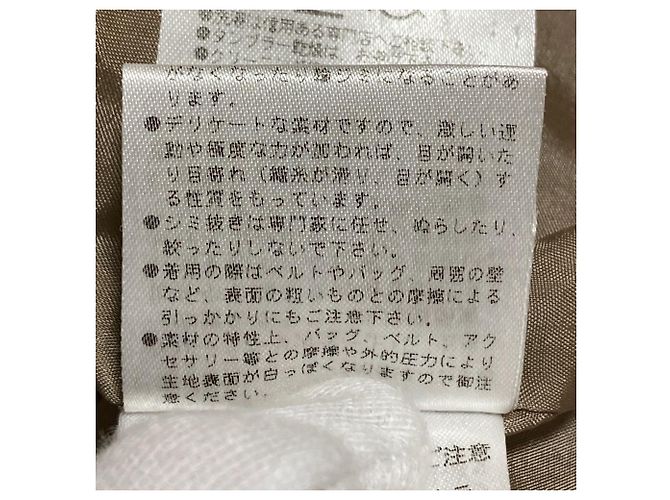 ●洗濯は信用ある専門店へ
●タンブラー乾燥は
がなくなったり
になることがあ
ります。
●デリケートな素材ですので、激しい運
動や極度な力が加われば、目が開いた
り目寄れ（織糸が滑り、目が開く）す
る性質をもっています。
●シミ抜きは専門家に任せ、ぬらしたり、
絞ったりしないで下さい。
●着用の際はベルトやバッグ、周囲の壁
など、表面の粗いものとの摩擦による
引っかかりにもご注意下さい。
●素材の特性上、バッグ、ベルト、アク
セサリー等との摩擦や外的圧力により
生地表面が白っぽくなりますので御注
意ください。
ご注意